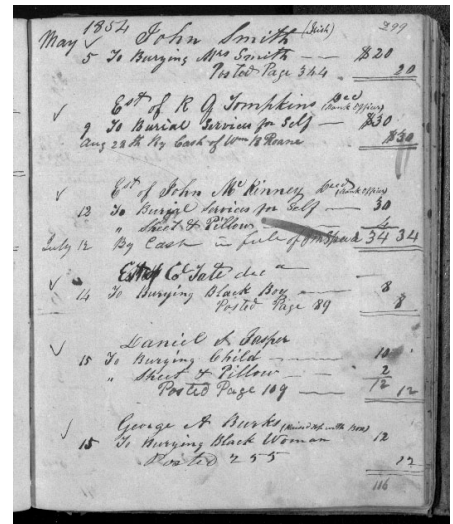 1854 John Smith (Irish) 299
May 5 To Burying Mrs Smith $20
Posted Page 344 20
Est of R G Tompkins Decd (Bank Officer)
9 To Burial Services for Self $30
Aug 28th By Cash of Wm B Roane $30
Est of John McKinney Decd
13 To Burial Services for Self 30
" Sheet & Pillow 4
July 12 By Cash in full of 34 34
Est C Tate decd
14 To Burying Black Boy 8
Posted Page 89 8
Daniel S Jasper
15 To Burying Child 10
" Sheet & Pillow 2
Posted Page 109 12 12
George A Burks
15 To Burying Black Woman 12
Posted 255 12
116